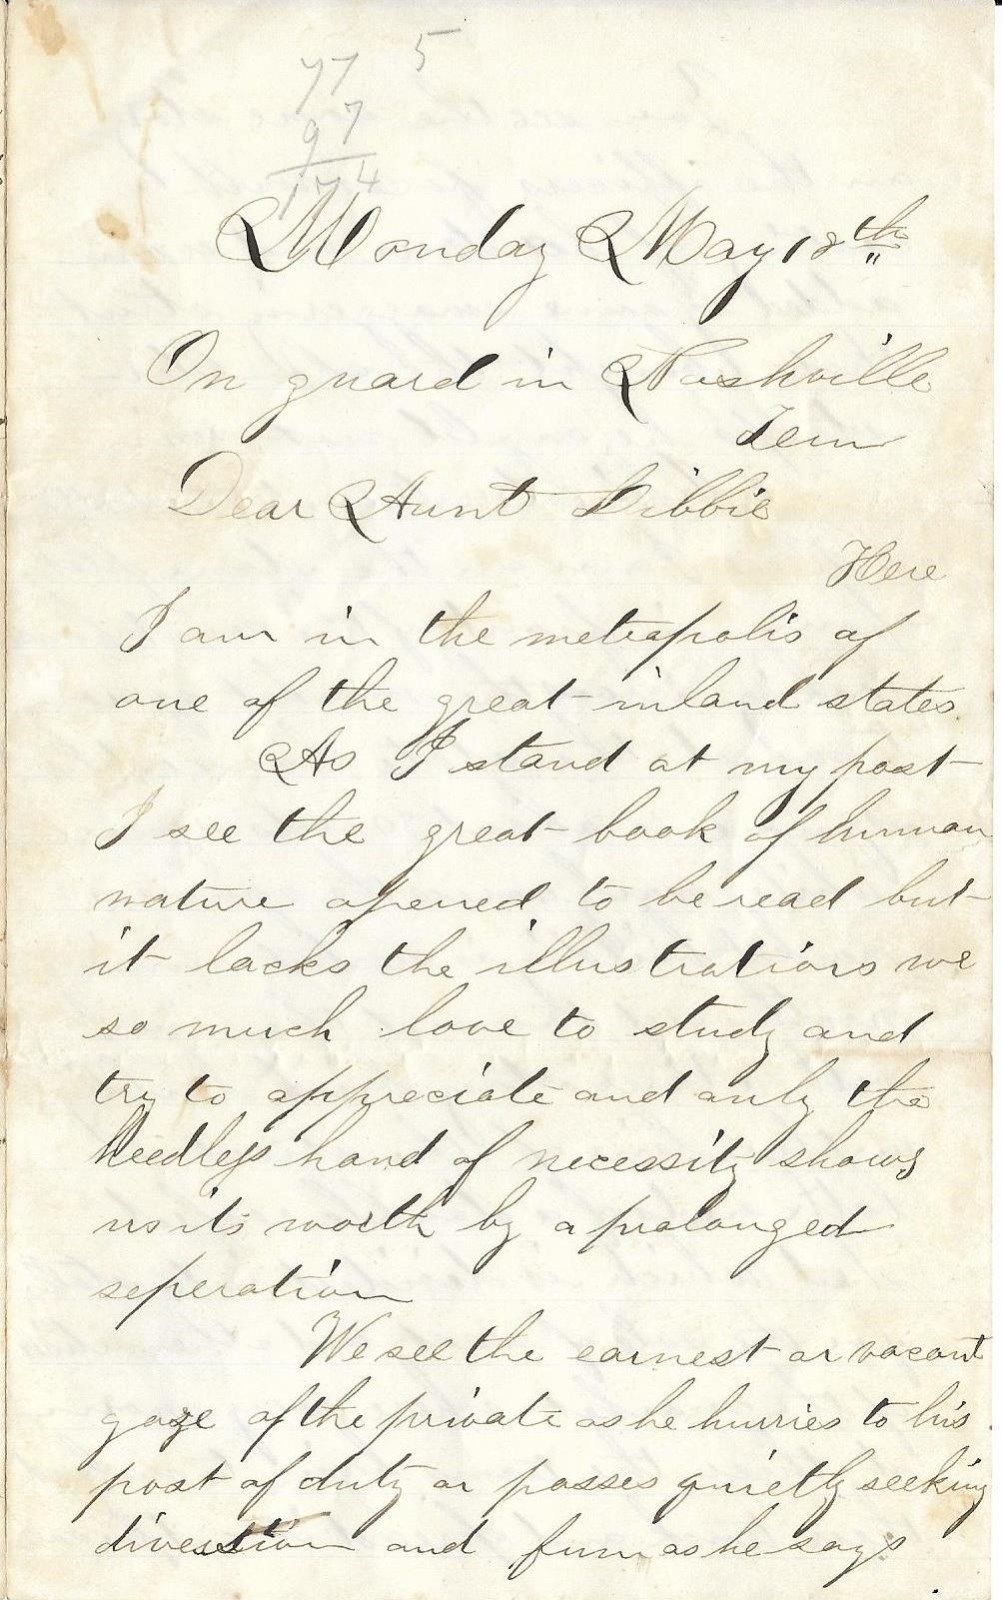 77 5
97
174
Monday May 18th
On guard in Nashville
Tenn
Dear Aunt Libbie
Here
I am in the metropolis of
one of the great inland states
As I stand at my post
I see the great book of human
nature opened to be read but
it lacks the illustrations we
so much love to study and
try to appreciate and only the
heedless hand of necessity shows
us its worth by a prolonged
seperation
We see the earnest or vacant
gaze of the private as he hurries to his
post of duty or passes quietly seeking
diversion and fun as he says